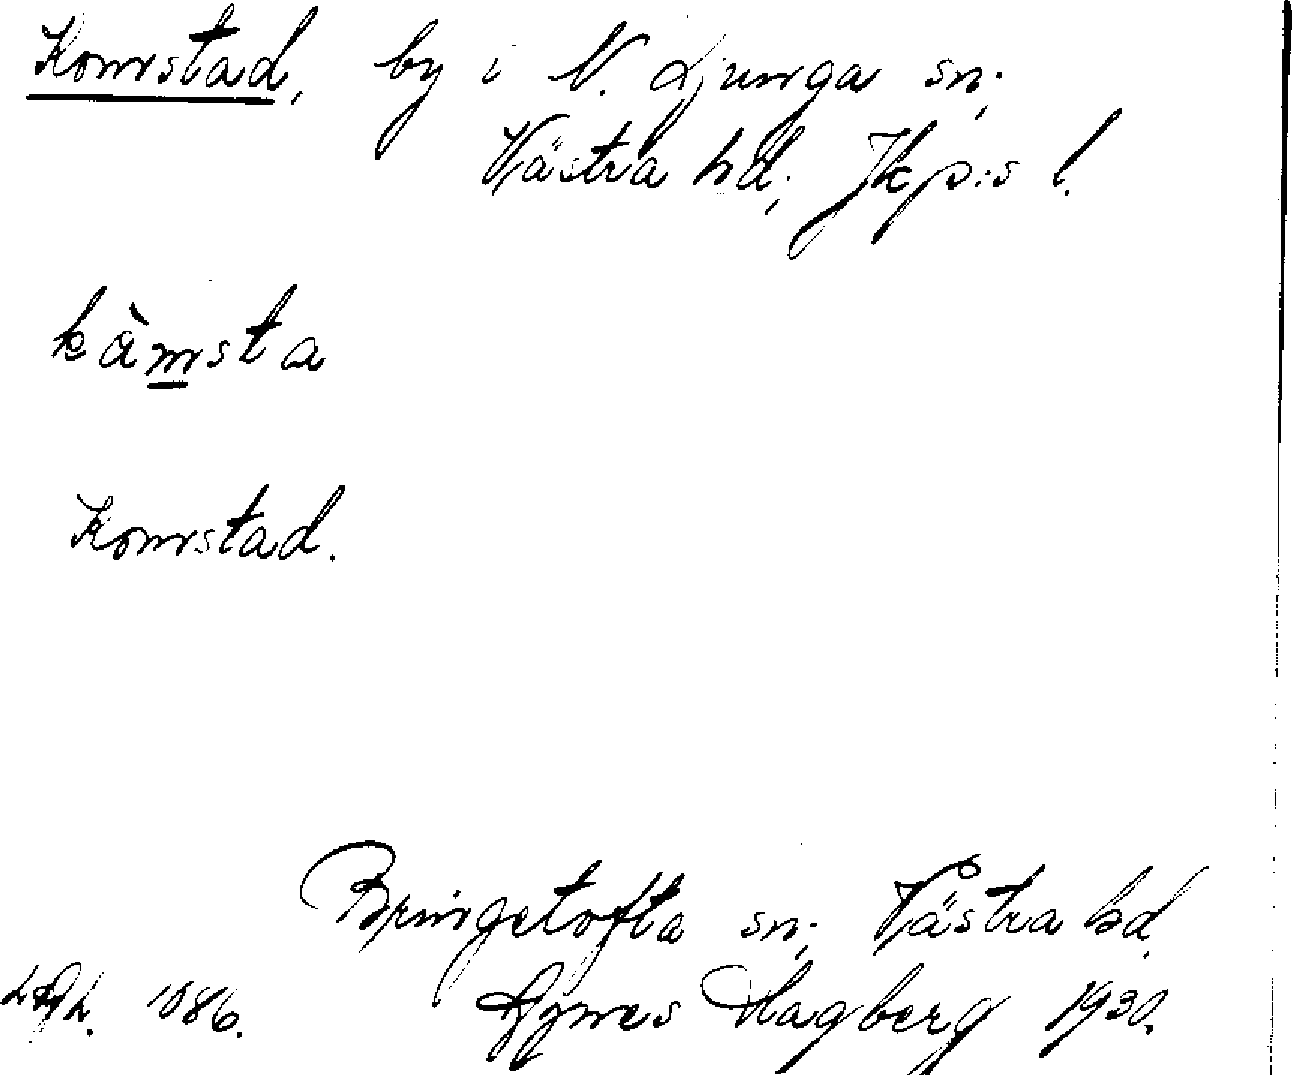 Komstad, by i N. Ljunga sn.,
Västra hd., Jkp:s l.
kàmsta
Komstad.
Bringetofta sn., Västra hd.
1086. Agnes Hagberg 1930.